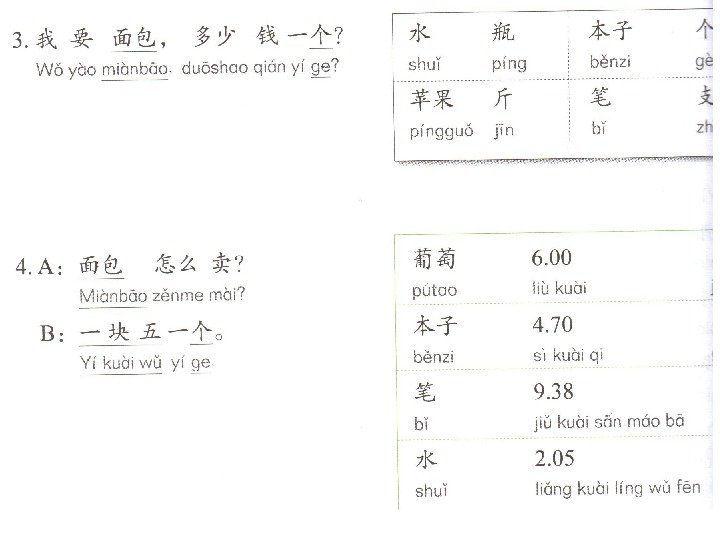 3. 我 要 面包， 多少 钱 一个？
Wǒ yào miànbāo, duōshao qián yí ge?
水 瓶 本子 个
shuǐ píng běnzi gè
苹果 斤 笔 支
píngguǒ jīn bǐ zh
4. A： 面包 怎么 卖？
Miànbāo zěnme mài?
B： 一 块 五 一个。
Yí kuài wǔ yí ge.
葡萄 6.00
pútao liù kuài
本子 4.70
běnzi sì kuài qī
笔 9.38
bǐ jiǔ kuài sān máo bā
水 2.05
shuǐ liǎng kuài líng wǔ fēn